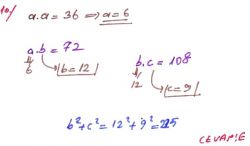 10/
a.a=36 ⟹ a=6
a.b=72
6 b=12
b.c=108
12 c=9
b²+c²=12²+9²=225
CEVAP: E